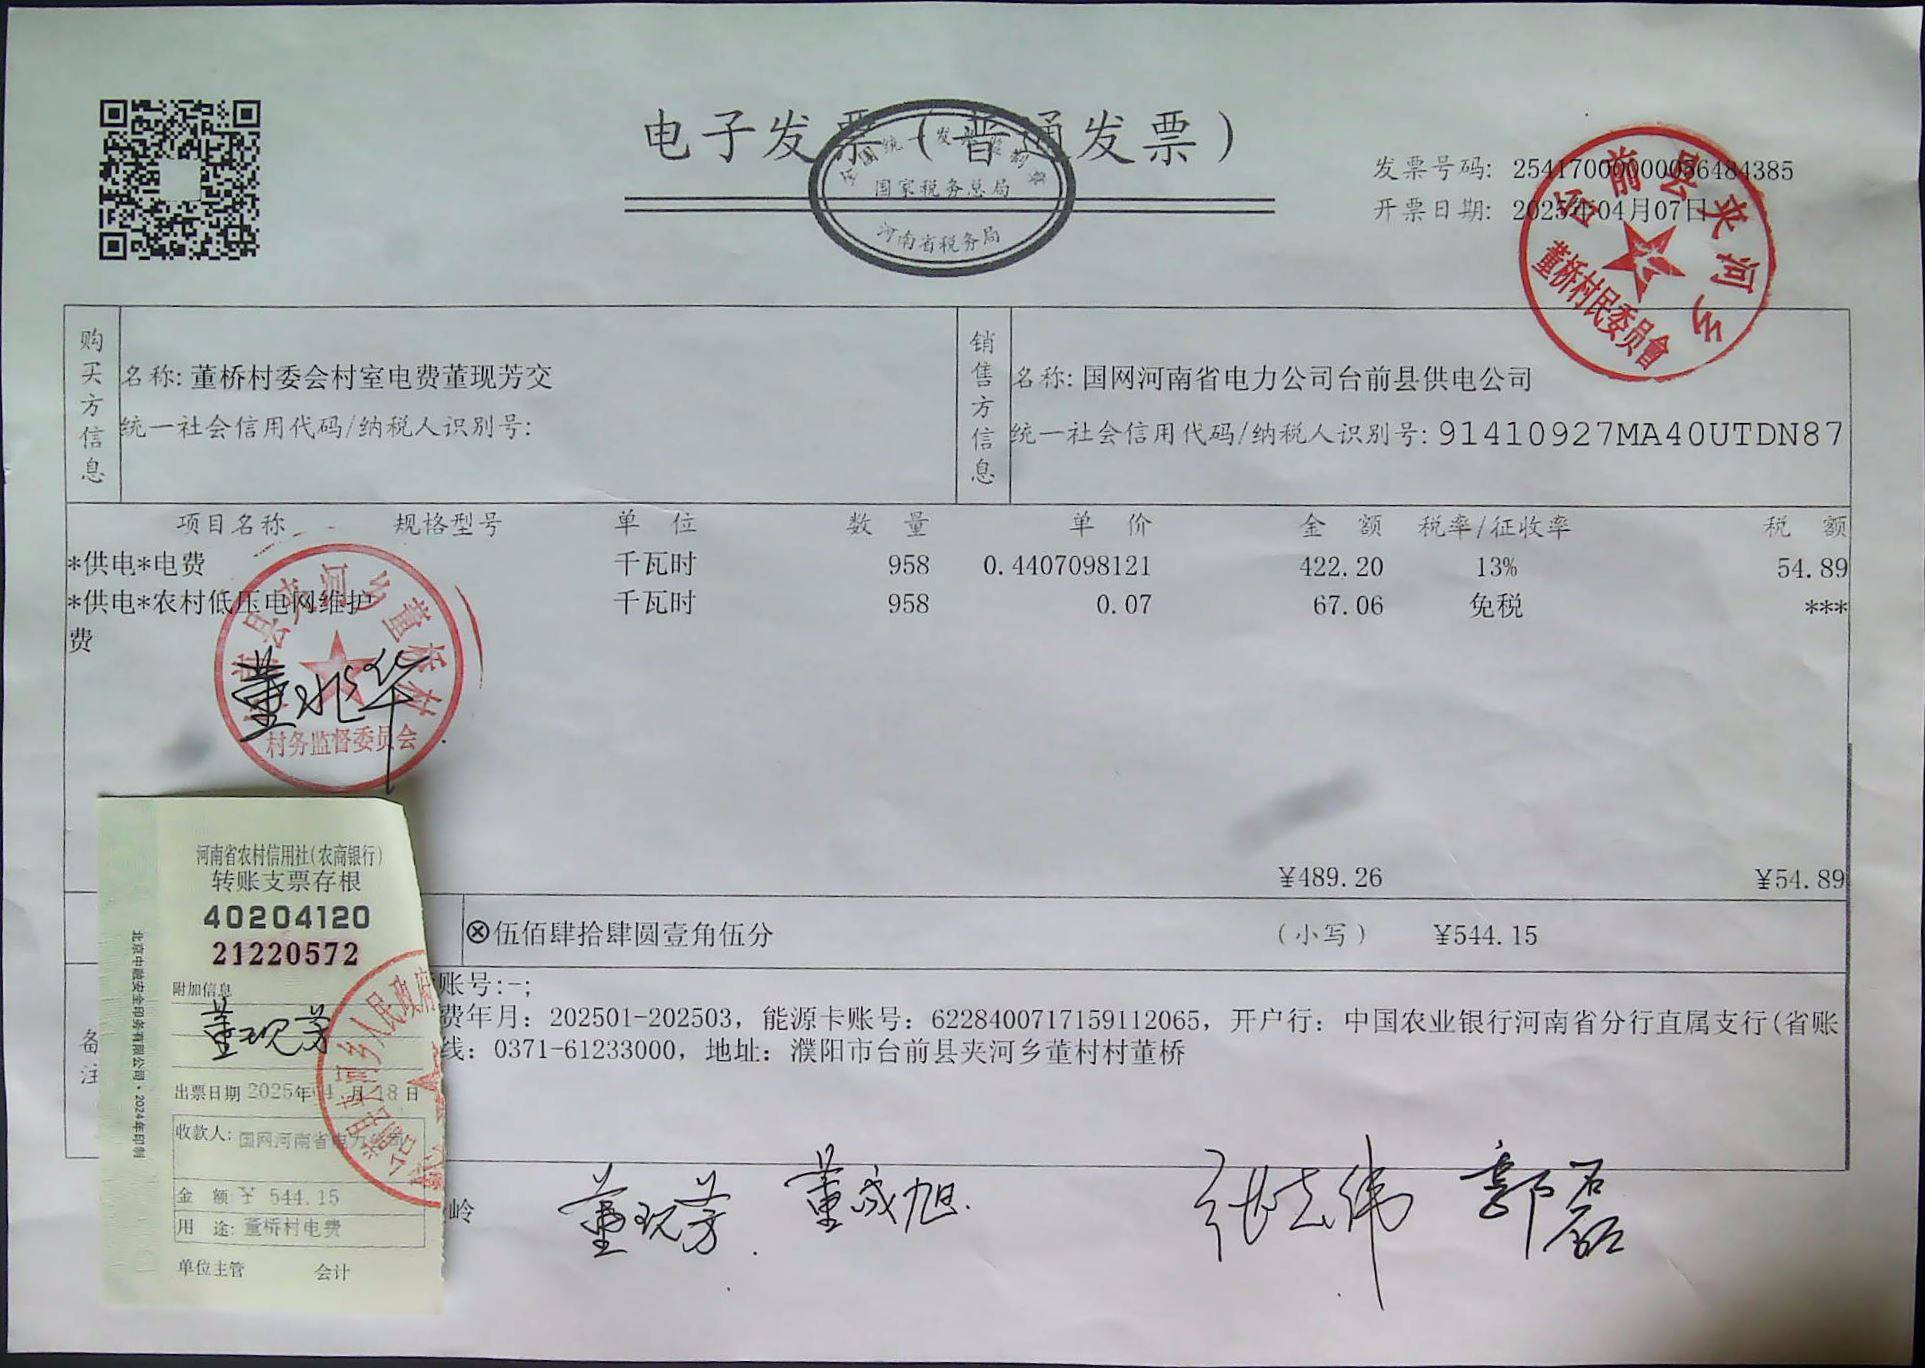 电子发票（普通发票）
全国统一发票监制章
国家税务总局
河南省税务局
发票号码: 25417000000086484385
开票日期: 2025年04月07日
台前县夹河乡
董桥村民委员會
购买方信息
名称: 董桥村委会村室电费董现芳交
统一社会信用代码/纳税人识别号:
销售方信息
名称: 国网河南省电力公司台前县供电公司
统一社会信用代码/纳税人识别号: 91410927MA40UTDN87
项目名称 规格型号 单 位 数 量 单 价 金 额 税率/征收率 税 额
*供电*电费 千瓦时 958 0.4407098121 422.20 13% 54.89
*供电*农村低压电网维护 千瓦时 958 0.07 67.06 免税 ***
费
县夹河乡董桥村
村务监督委员会
董兆华
¥489.26 ¥54.89
⊗伍佰肆拾肆圆壹角伍分 (小写) ¥544.15
备注
账号:-;
费年月: 202501-202503, 能源卡账号: 6228400717159112065, 开户行: 中国农业银行河南省分行直属支行(省账
线: 0371-61233000, 地址: 濮阳市台前县夹河乡董村村董桥
河南省农村信用社(农商银行)
转账支票存根
40204120
21220572
附加信息
董现芳
出票日期 2025年04月18日
收款人: 国网河南省电力公司
金 额 ¥ 544.15
用 途: 董桥村电费
单位主管 会计
北京中融安全印务有限公司·2024年印制
河乡人民政府
岭
董现芳 董成旭 张志伟 郭磊